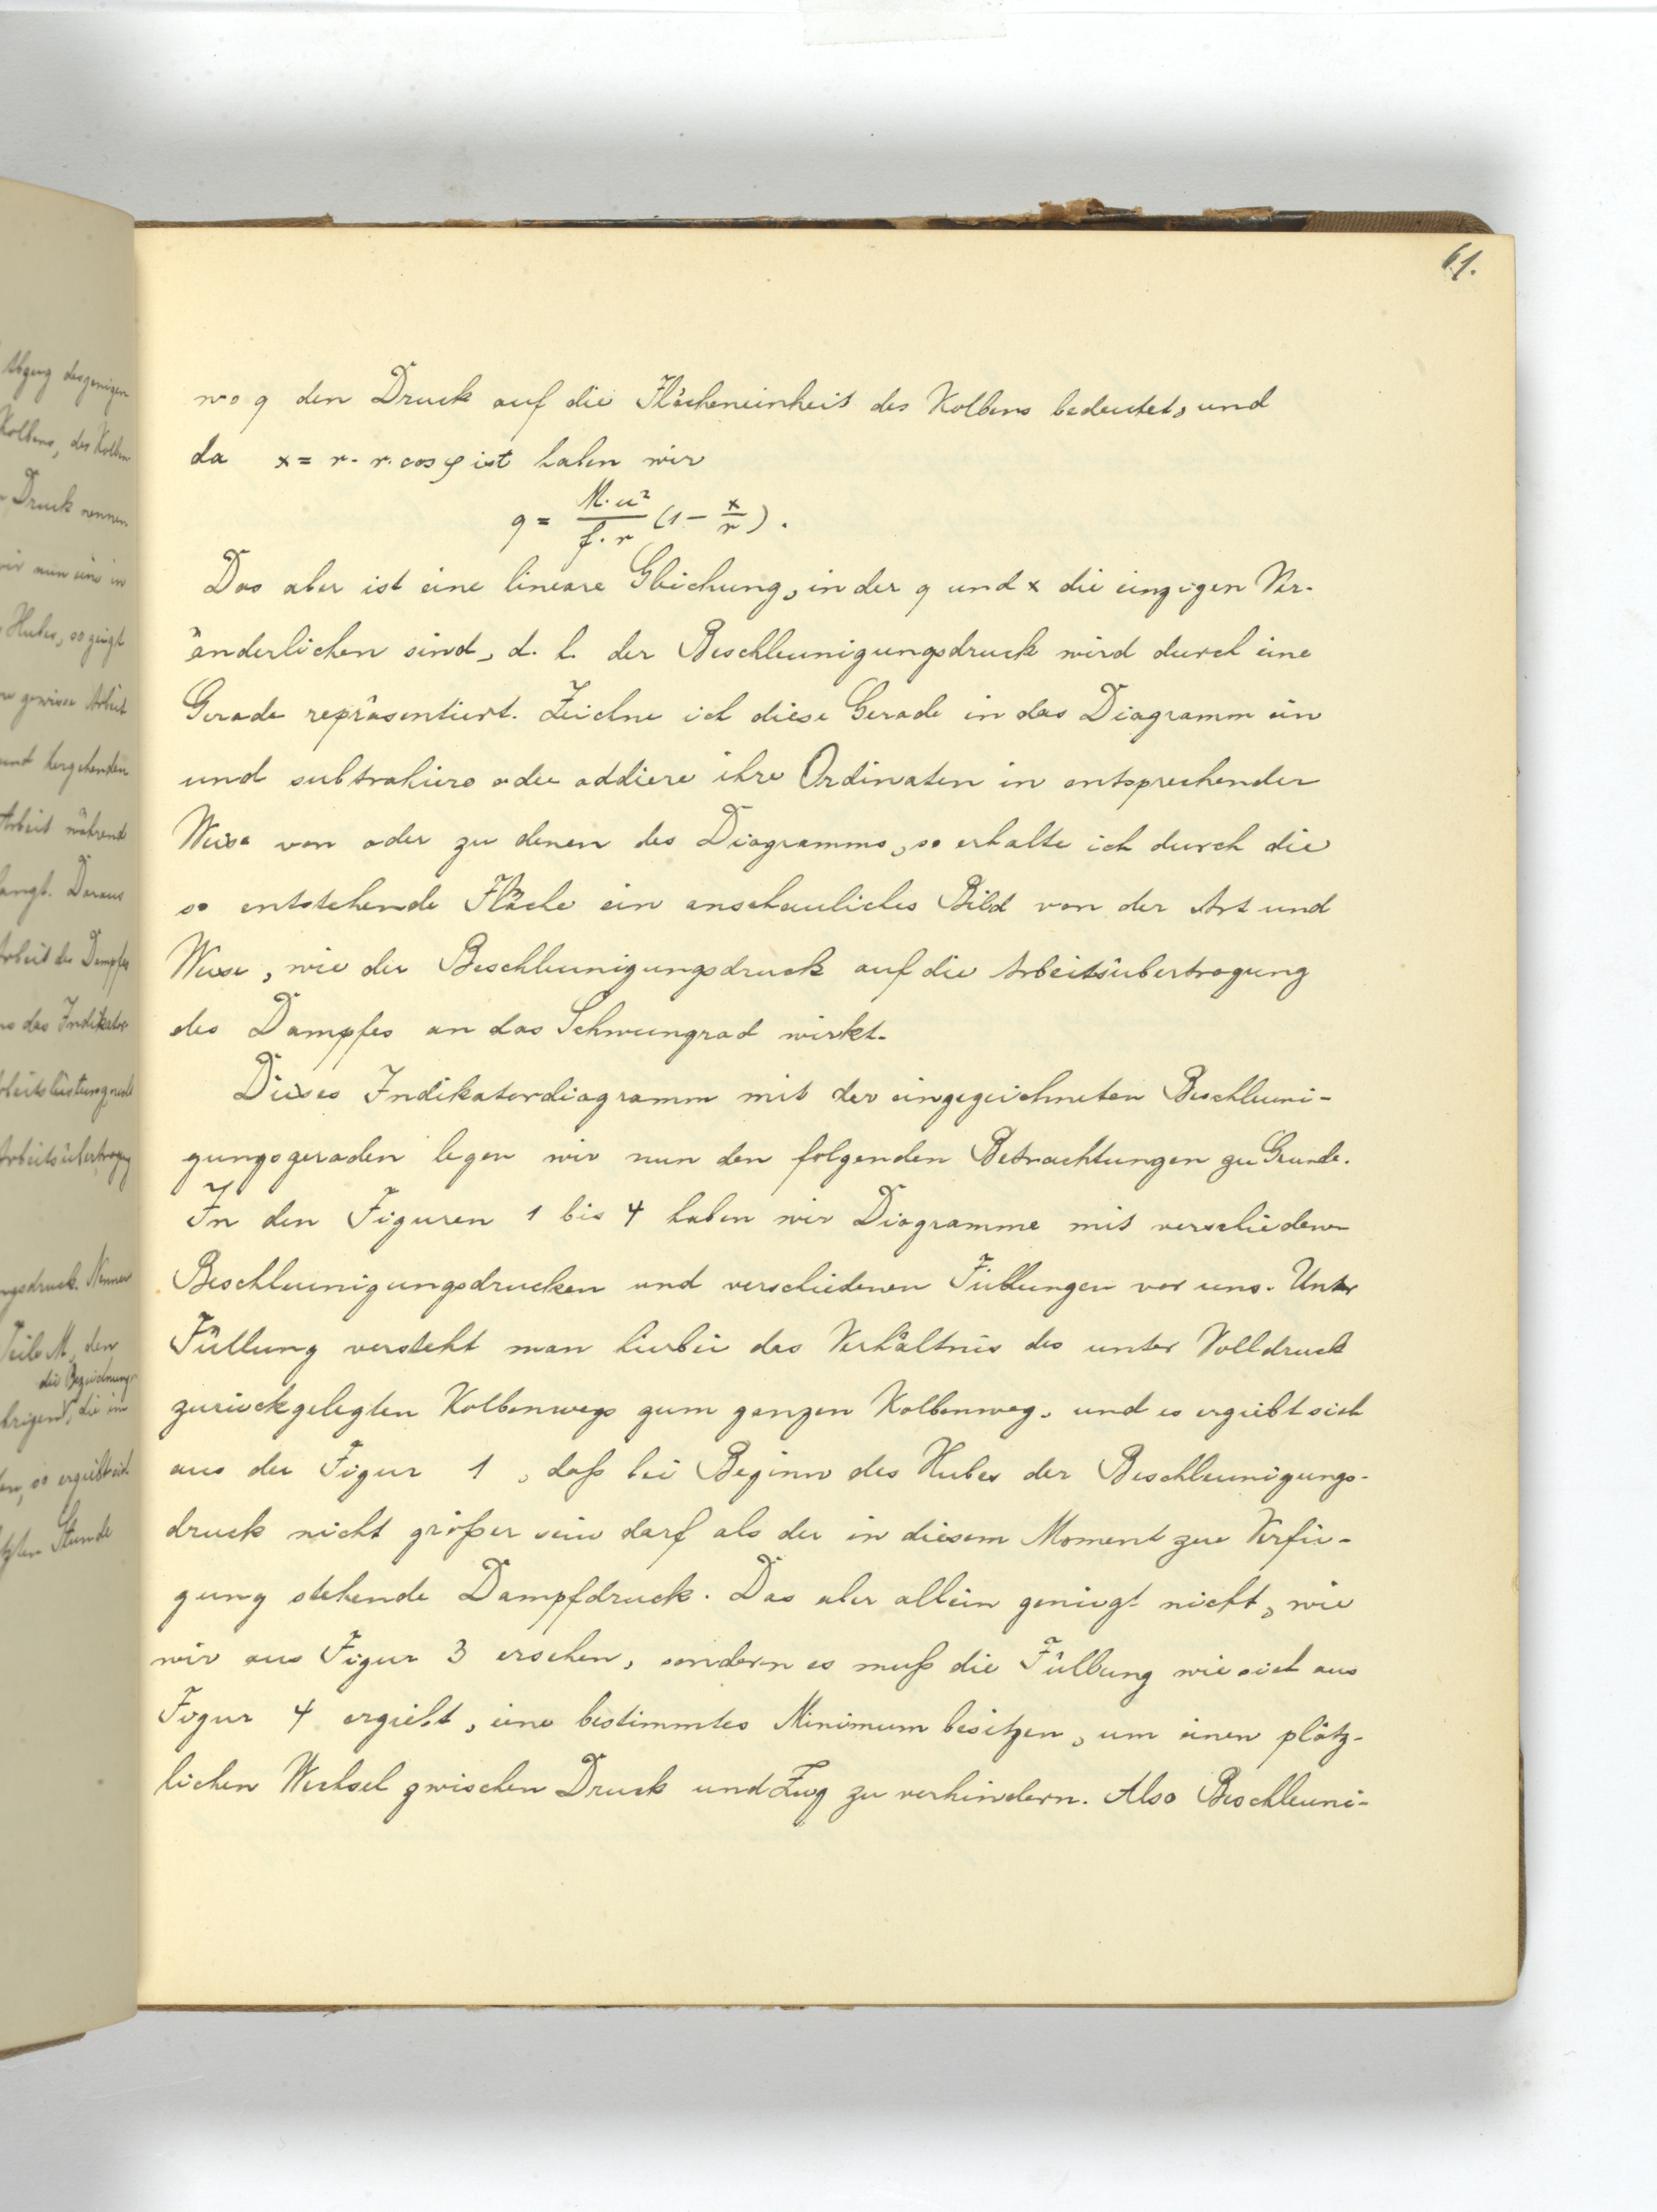 61.
wo q den Druck auf die Flächeneinheit des Kolbens bedeutet, und
da x = r - r. cos φ ist haben wir
q = M·u²/f·r (1 - x/r).
Das aber ist eine lineare Gleichung, in der q und x die einzigen Ver-
änderlichen sind, d. h. der Beschleunigungsdruck wird durch eine
Gerade repräsentiert. Zeichne ich diese Gerade in das Diagramm ein
und subtrahiere oder addiere ihre Ordinaten in entsprechender
Weise von oder zu denen des Diagramms, so erhalte ich durch die
so entstehende Fläche ein anschauliches Bild von der Art und
Weise, wie der Beschleunigungsdruck auf die Arbeitsübertragung
des Dampfes an das Schwungrad wirkt.
Dieses Indikatordiagramm mit der eingezeichneten Beschleuni-
gungsgeraden legen wir nun den folgenden Betrachtungen zu Grunde.
In den Figuren 1 bis 4 haben wir Diagramme mit verschiedenen
Beschleunigungsdrucken und verschiedenen Füllungen vor uns. Unter
Füllung versteht man hierbei das Verhältnis des unter Volldruck
zurückgelegten Kolbenwegs zum ganzen Kolbenweg, und es ergiebt sich
aus der Figur 1, daß bei Beginn des Hubes der Beschleunigungs-
druck nicht größer sein darf als der in diesem Moment zur Verfü-
gung stehende Dampfdruck. Das aber allein genügt nicht, wie
wir aus Figur 3 ersehen, sondern es muß die Füllung wie sich aus
Figur 4 ergiebt, eine bestimmtes Minimum besitzen, um einen plötz-
lichen Wechsel zwischen Druck und Zug zu verhindern. Also Beschleuni-